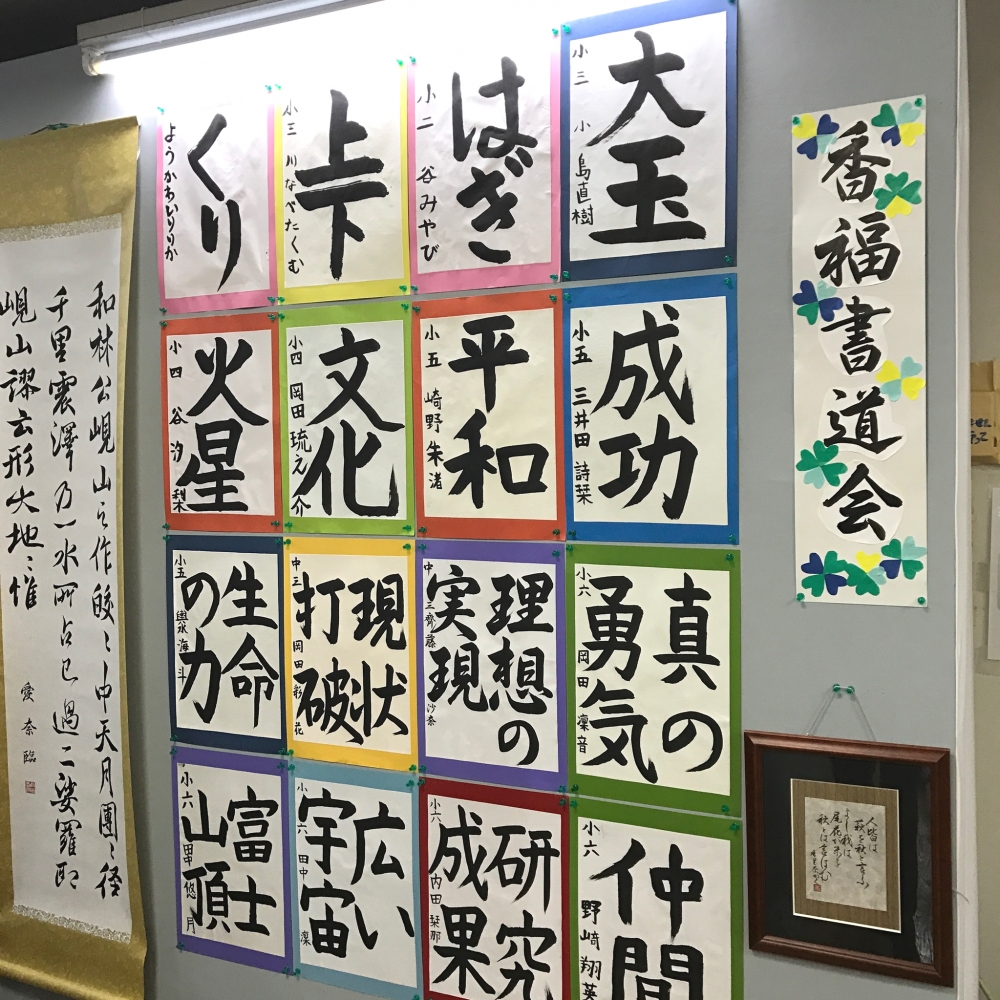 香福書道会
大玉
小三 小島直樹
はぎ
小二 谷みやび
上下
小三 川なべたくむ
くり
ようかわいりりか
成功
小五 三井田詩栞
平和
小五 崎野朱渚
文化
小四 岡田琉之介
火星
小四 谷汐梨
真の
勇気
小六 岡田凜音
理想の
実現
中三 齋藤沙奈
現状
打破
中三 岡田彩花
生命
の力
小五 海斗
仲間
小六 野崎翔英
研究
成果
小六 内田栞那
広い
宇宙
小六 田中凜
富士
山頂
小六 悠月
和林公峴山之作皎〻中天月團〻徑
千里震澤乃一水所占已過二娑羅即
峴山謬云形大地〻惟
愛奈臨
人皆は
萩を秋と言ふ
よし我は
尾花が末を
秋とは言はむ